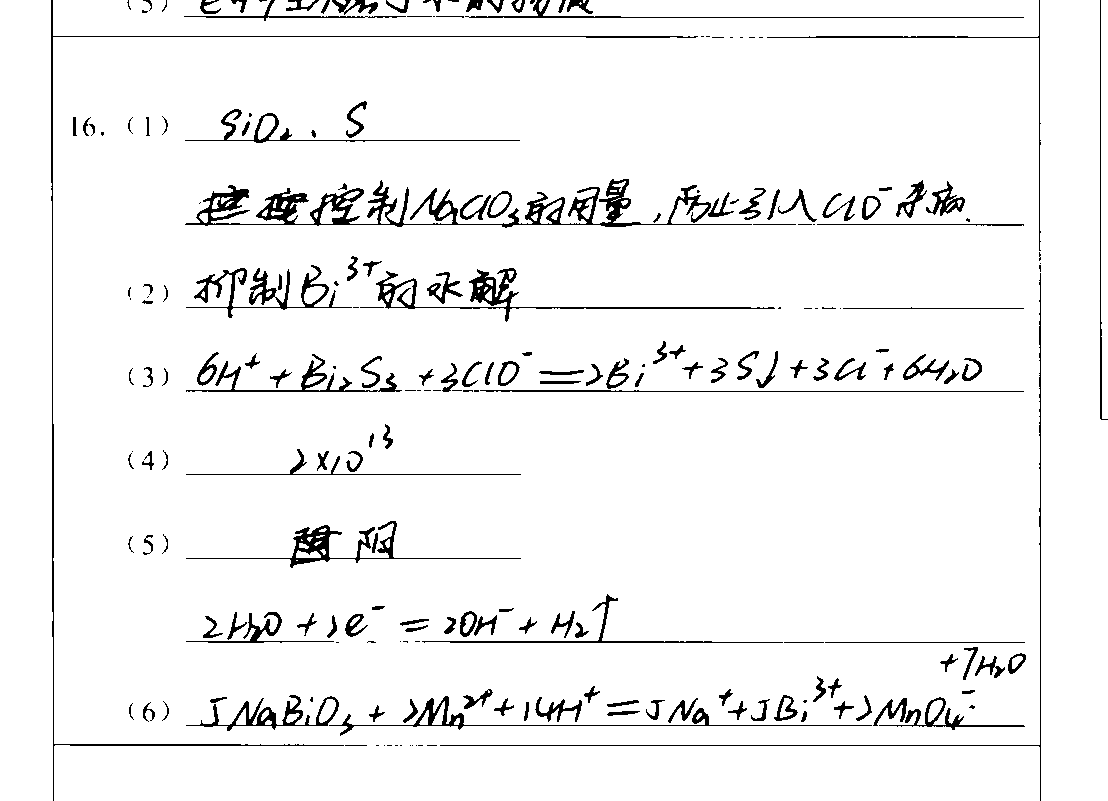 16.（1） SiO₂、S
控制NaClO₃的用量，防止引入ClO⁻杂质.
（2）抑制Bi³⁺的水解
（3）6H⁺+Bi₂S₃+3ClO⁻=2Bi³⁺+3S↓+3Cl⁻+6H₂O
（4）2×10¹³
（5）阴
2H₂O+2e⁻=2OH⁻+H₂↑
（6）5NaBiO₃+2Mn²⁺+14H⁺=5Na⁺+5Bi³⁺+2MnO₄⁻+7H₂O